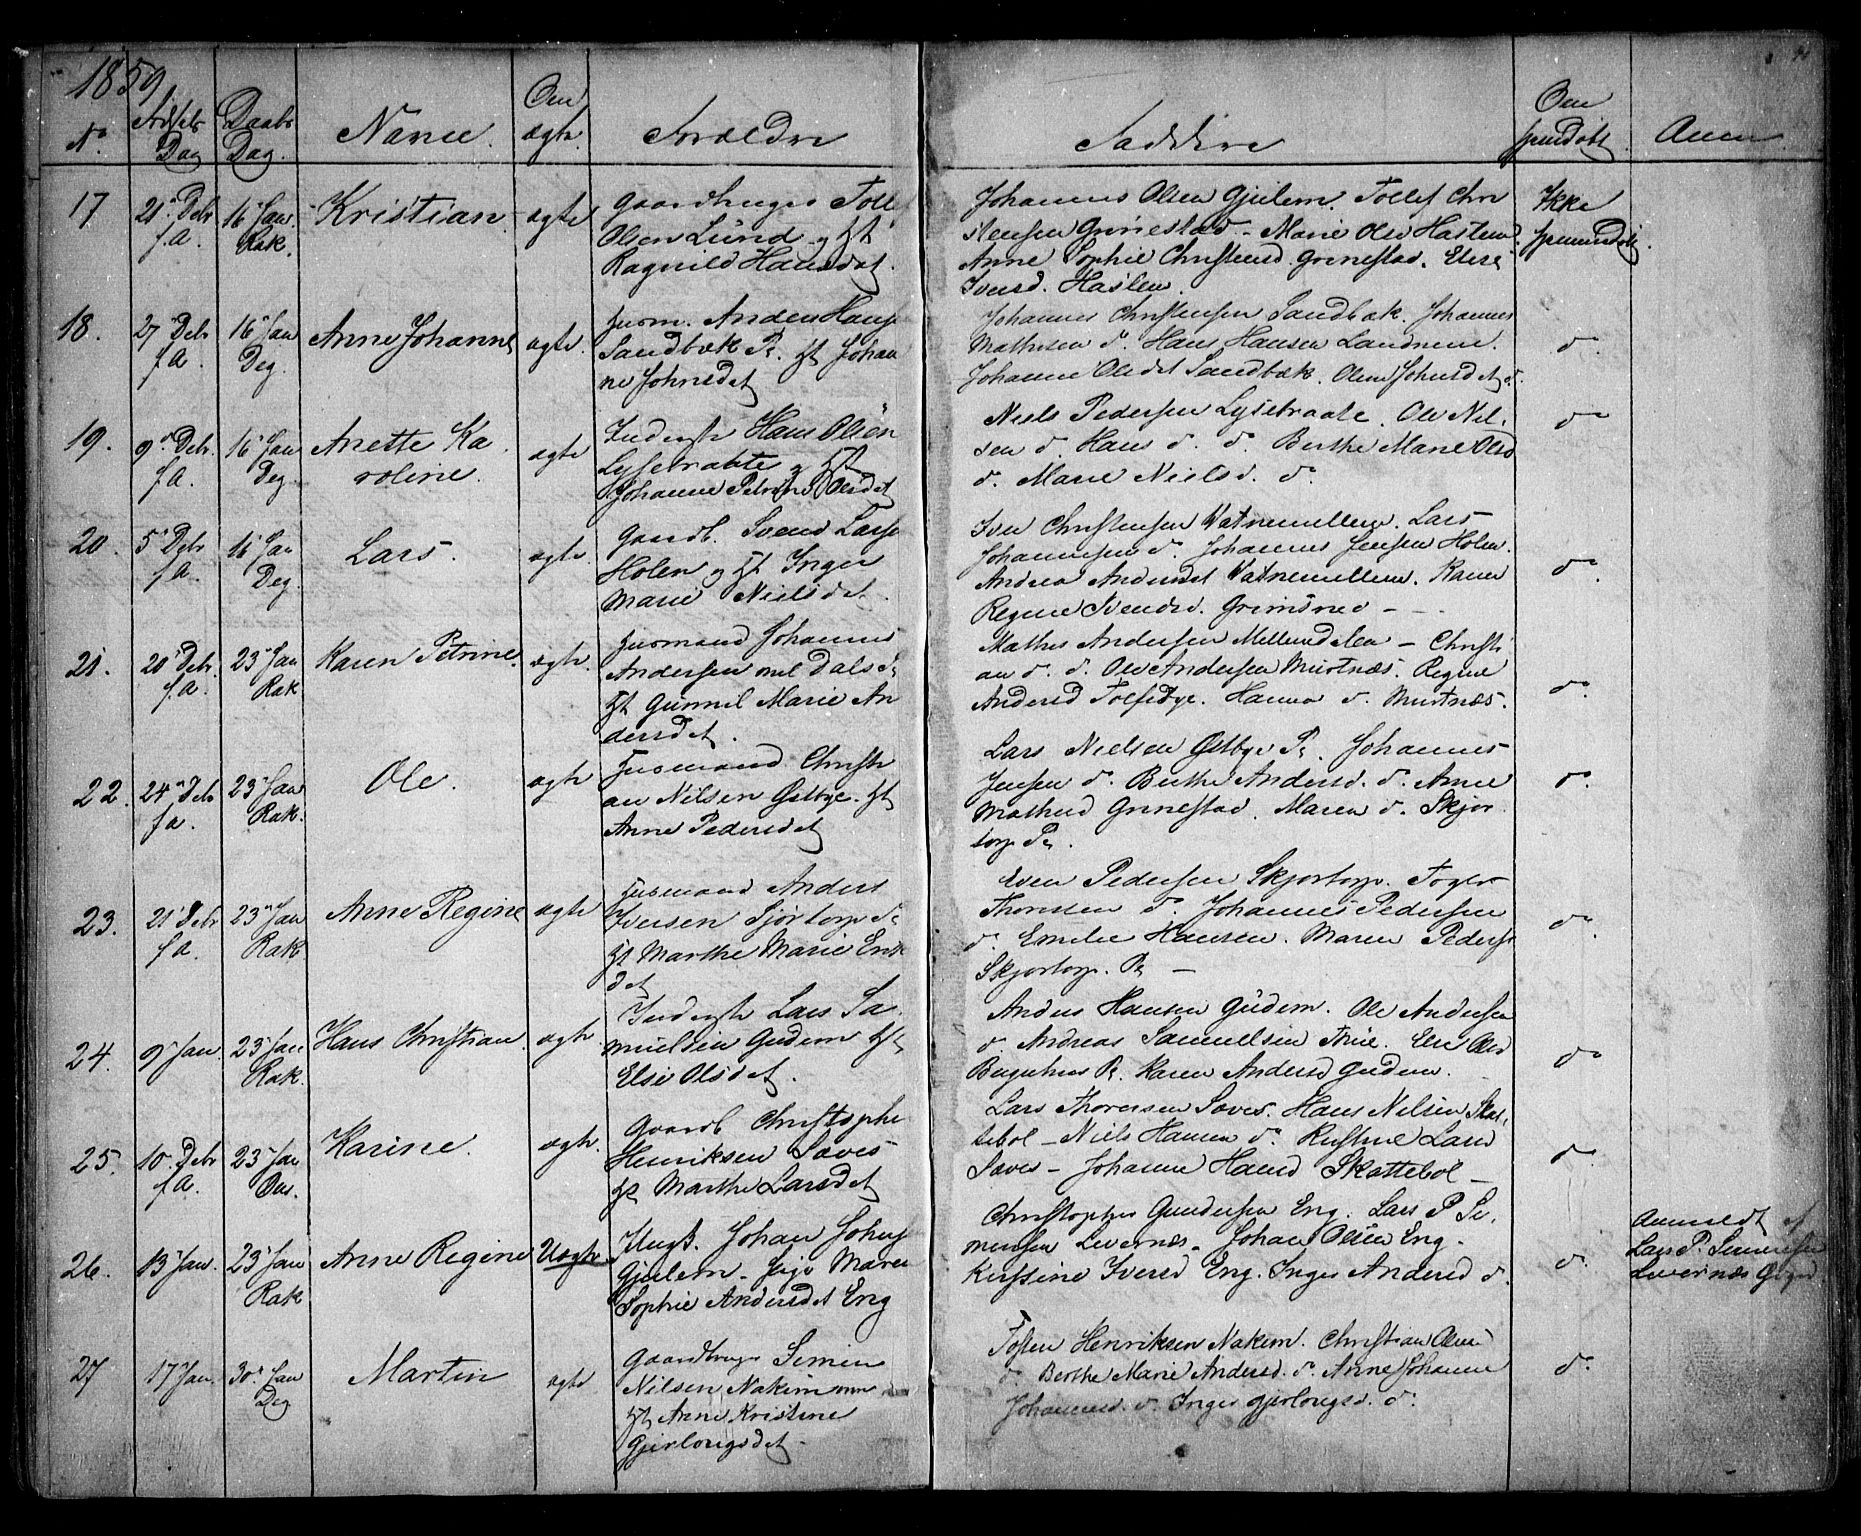 1859
No
Fødsels Dag
Daabs Dag.
Navn.
Om ægte.
Forældre
Faddere
Om
Anm
17 21 Debr f.A. 16 Jan Rak. Kristian ægte
Gaardbruger Toll
Olsen Lund og H
Ragnild Hansdat.
Johannes Olsen Gjulem. Tollef Chri
stensen Grinestad - Marie Olsd Haslem.
Anne Sophie Christensd. Grinestad. Else
Iversd. Haslem.
Ikke
18. 27 Debr f.A. 16 Jan Deg. Anne Johanne ægte.
Husm. Anders Hans
Sandbæk P. H Johan
ne Johnsdat
Johannes Christensen Sandbæk. Johannes
Mathisen do. Hans Hansen Landnem.
Johanne Olsdat Sandbæk. Oline Johnsdat do.
do.
19. 9 Debr. f.A. 16 Jan Deg. Anette Ka
roline. ægte
Inderst Hans Olsen
Lysebraate og H
Johanne Petrine Olsdat
Niels Pedersen Lysebraate. Ole Nil
sen do. Hans do. do. Berthe Marie Olsd
do. Marie Nielsd. do.
do
20. 5 Debr f.A. 16 Jan Deg. Lars. ægte.
Gaardb. Svend Larse
Holen og H Inger
Marie Nielsdat.
Iver Christensen Vatnemellem. Lars
Johannesen do. Johannes Jensen Holen.
Andrea Andersdat Vatnemellem. Karen
Regine Svendsd. Grimsned -
do.
21. 20 Debr. f.A. 23 Jan Rak Karen Petrine. ægte.
Husmand Johannes
Andersen
H Gunnil Marie An
dersdat.
Mathis Andersen Mellemdalen - Christi
an do. do. Ole Andersen Mustnæs. Regine
Andersd Tolfsbye. Hanna do. Mustnæs.
do.
22. 24 Debr f.A. 23 Jan Rak. Ole. ægte
Husmand Christi
an Nilsen Østbye. H
Anne Pedersdat
Lars Nielsen Østbye P. Johannes
Jensen do. Berthe Andersd. do. Anne
Mathisd Grinestad. Maren do. Skjor
torp P.
do.
23. 21 Debr f.A. 23 Jan Rak Anne Regine ægte
Husmand Anders
Iversen Sjørtorp
H Marthe Marie Erik
dat
Even Pedersen Skjortorp.
Thoresen do. Johannes Pedersen
do. Emilie Hansen. Maren Peders
Skjortorp. P. -
do.
24. 9 Jan 23 Jan Rak. Hans Christian. ægte
Inderst Lars Sa
muelsen Gudem H
Else Olsdat.
Anders Hansen Gudem. Ole Andersen
do Andreas Samuelsen Else Olsd
P. Karen Andersd Gudem.
do
25. 10. Debr f.A. 23 Jan Ons. Karine. ægte.
Gaardb Christophe
Henriksen Saves
H Marthe Larsdat
Lars Thoresen Saves. Hans Nilsen Skat
tebol - Niels Hansen do. Kirstine Larsd
Saves - Johanne Hansd Skattebol -
do.
26. 13 Jan. 23 Jan Rak Anne Regine Uægte
Ungk. Johan Johns
Gjulem. Pige Maren
Sophie Andersdat Eng
Christopher Gundersen Eng. Lars P Si
mensen Levernæs. Johan Olsen Eng.
Kirstine Iversd Eng. Inger Andersd do.
do.
Anmeldt af
Lars P. Simensen
Levernæs
27 17 Jan. 30 Jan Deg Martin ægte
Gaardbruger Simen
Nilsen Nakim
H Anne Kristine
Gjerlougsdat.
Tosten Henriksen Nakim. Christian Olsen
do. Berthe Marie Andersd. do. Anne Johanne
Johannesd. do. Inger Gjerlougsd. do.
do.